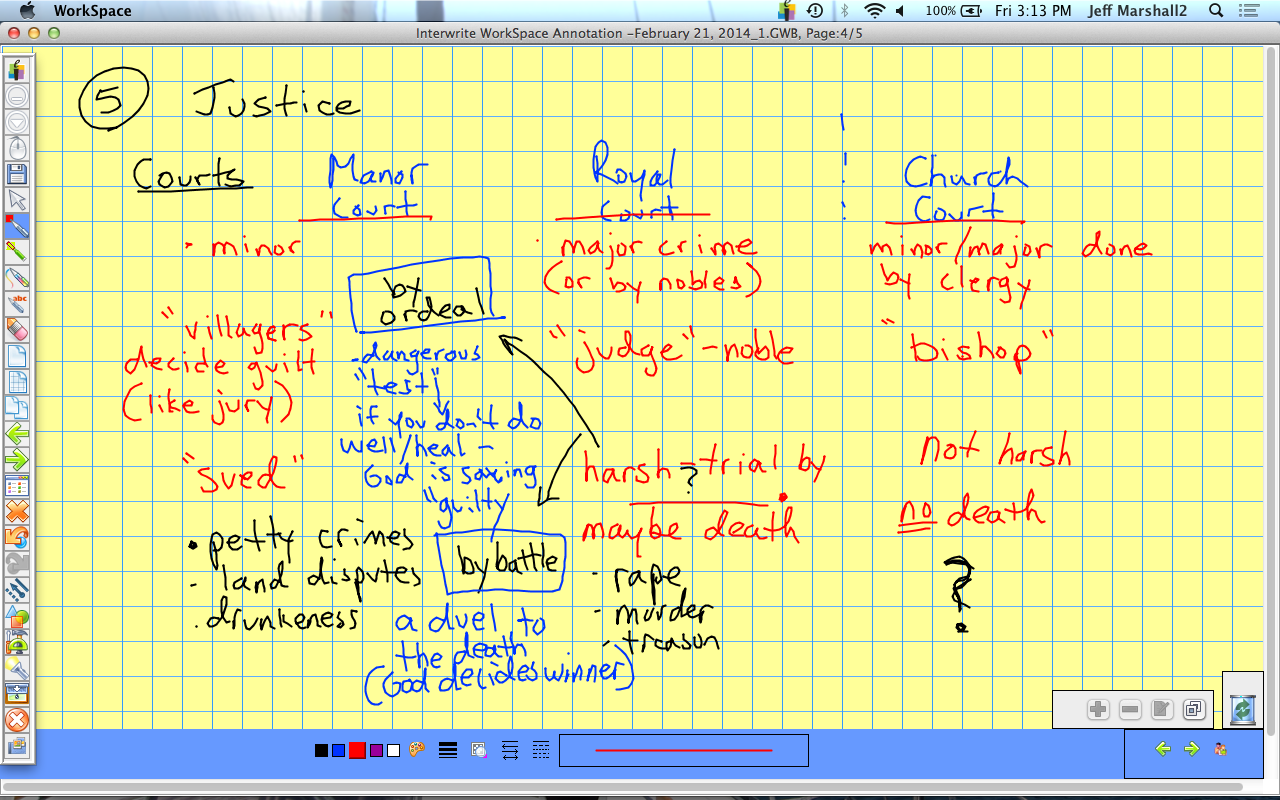 WorkSpace
100%
Fri 3:13 PM
Jeff Marshall2
Interwrite WorkSpace Annotation –February 21, 2014_1.GWB, Page:4/5
5 Justice
Courts
Manor
Court
• minor
"villagers"
decide guilt
(like jury)
"sued"
• petty crimes
- land disputes
. drunkeness
by
ordeal
- dangerous
"test"
if you don't do
well/heal –
God is saying
"guilty
by battle
a duel to
the death
(God decides winner)
Royal
Court
· major crime
(or by nobles)
"judge" - noble
harsh = trial by
?
maybe death
- rape
- murder
- treason
Church
Court
minor/major done
by clergy
"bishop"
not harsh
no death
?
abc